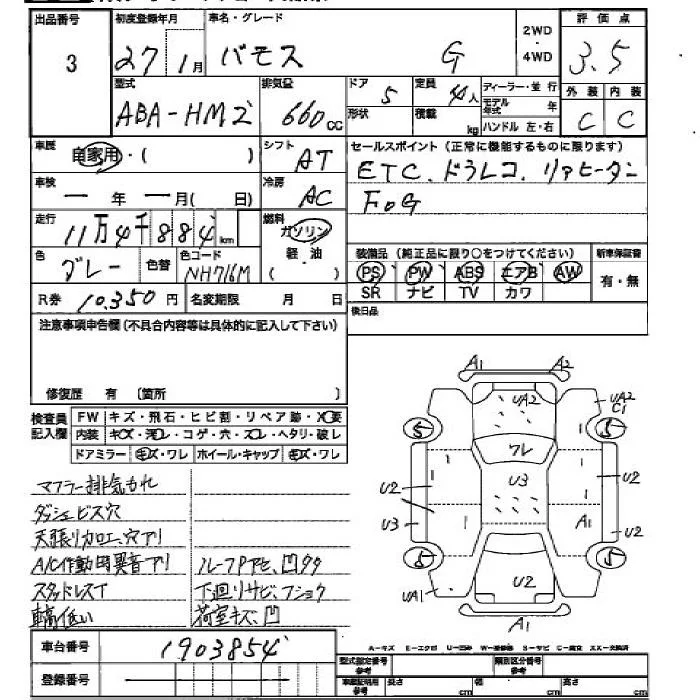 出品番号 初度登録年月 車名・グレード 2WD・4WD 評価点
3 27年1月 バモス G 3.5
型式 排気量 ドア 定員 ディーラー・並行 外装 内装
ABA-HM2 660cc 5 4人 モデル年式 年 C C
形状 積載 kg ハンドル 左・右
車歴 自家用・( ) シフト AT セールスポイント(正常に機能するものに限ります)
ETC、ドラレコ、リアヒーター
車検 ー年ー月( 日) 冷房 AC FOG
走行 11万4千884km 燃料 ガソリン
軽油
( )
色 グレー 色替 色コード NH716M
装備品(純正品に限り○をつけてください) 新車保証書
PS PW ABS エアB AW 有・無
SR ナビ TV カワ
R券 10,350円 名変期限 月 日
後日品
注意事項申告欄(不具合内容等は具体的に記入して下さい)
修復歴 有 〔箇所 〕
検査員記入欄 FW キズ・飛石・ヒビ割・リペア跡・X要
内装 キズ・汚レ・コゲ・穴・スレ・ヘタリ・破レ
ドアミラー キズ・ワレ ホイール・キャップ キズ・ワレ
マフラー排気もれ
ダッシュビス穴
天張り加工、穴アリ
A/C作動時異音アリ ルーフPアセ、凹多々
スタッドレスT 下廻りサビ、フショク
車高低い 荷室キズ、凹
A1 A2
UA2 UA2
C1
5 5
ワレ
U2 U3 U2
U3 A1 U2
5 5
UA1 U2
A1
A-キズ E-エクボ U-凹み W-補修跡 S-サビ C-腐食 XX-交換済
車台番号 1903854
登録番号
型式指定番号 参考 類別区分番号 参考
車庫証明用 参考 長さ cm 幅 cm 高さ cm